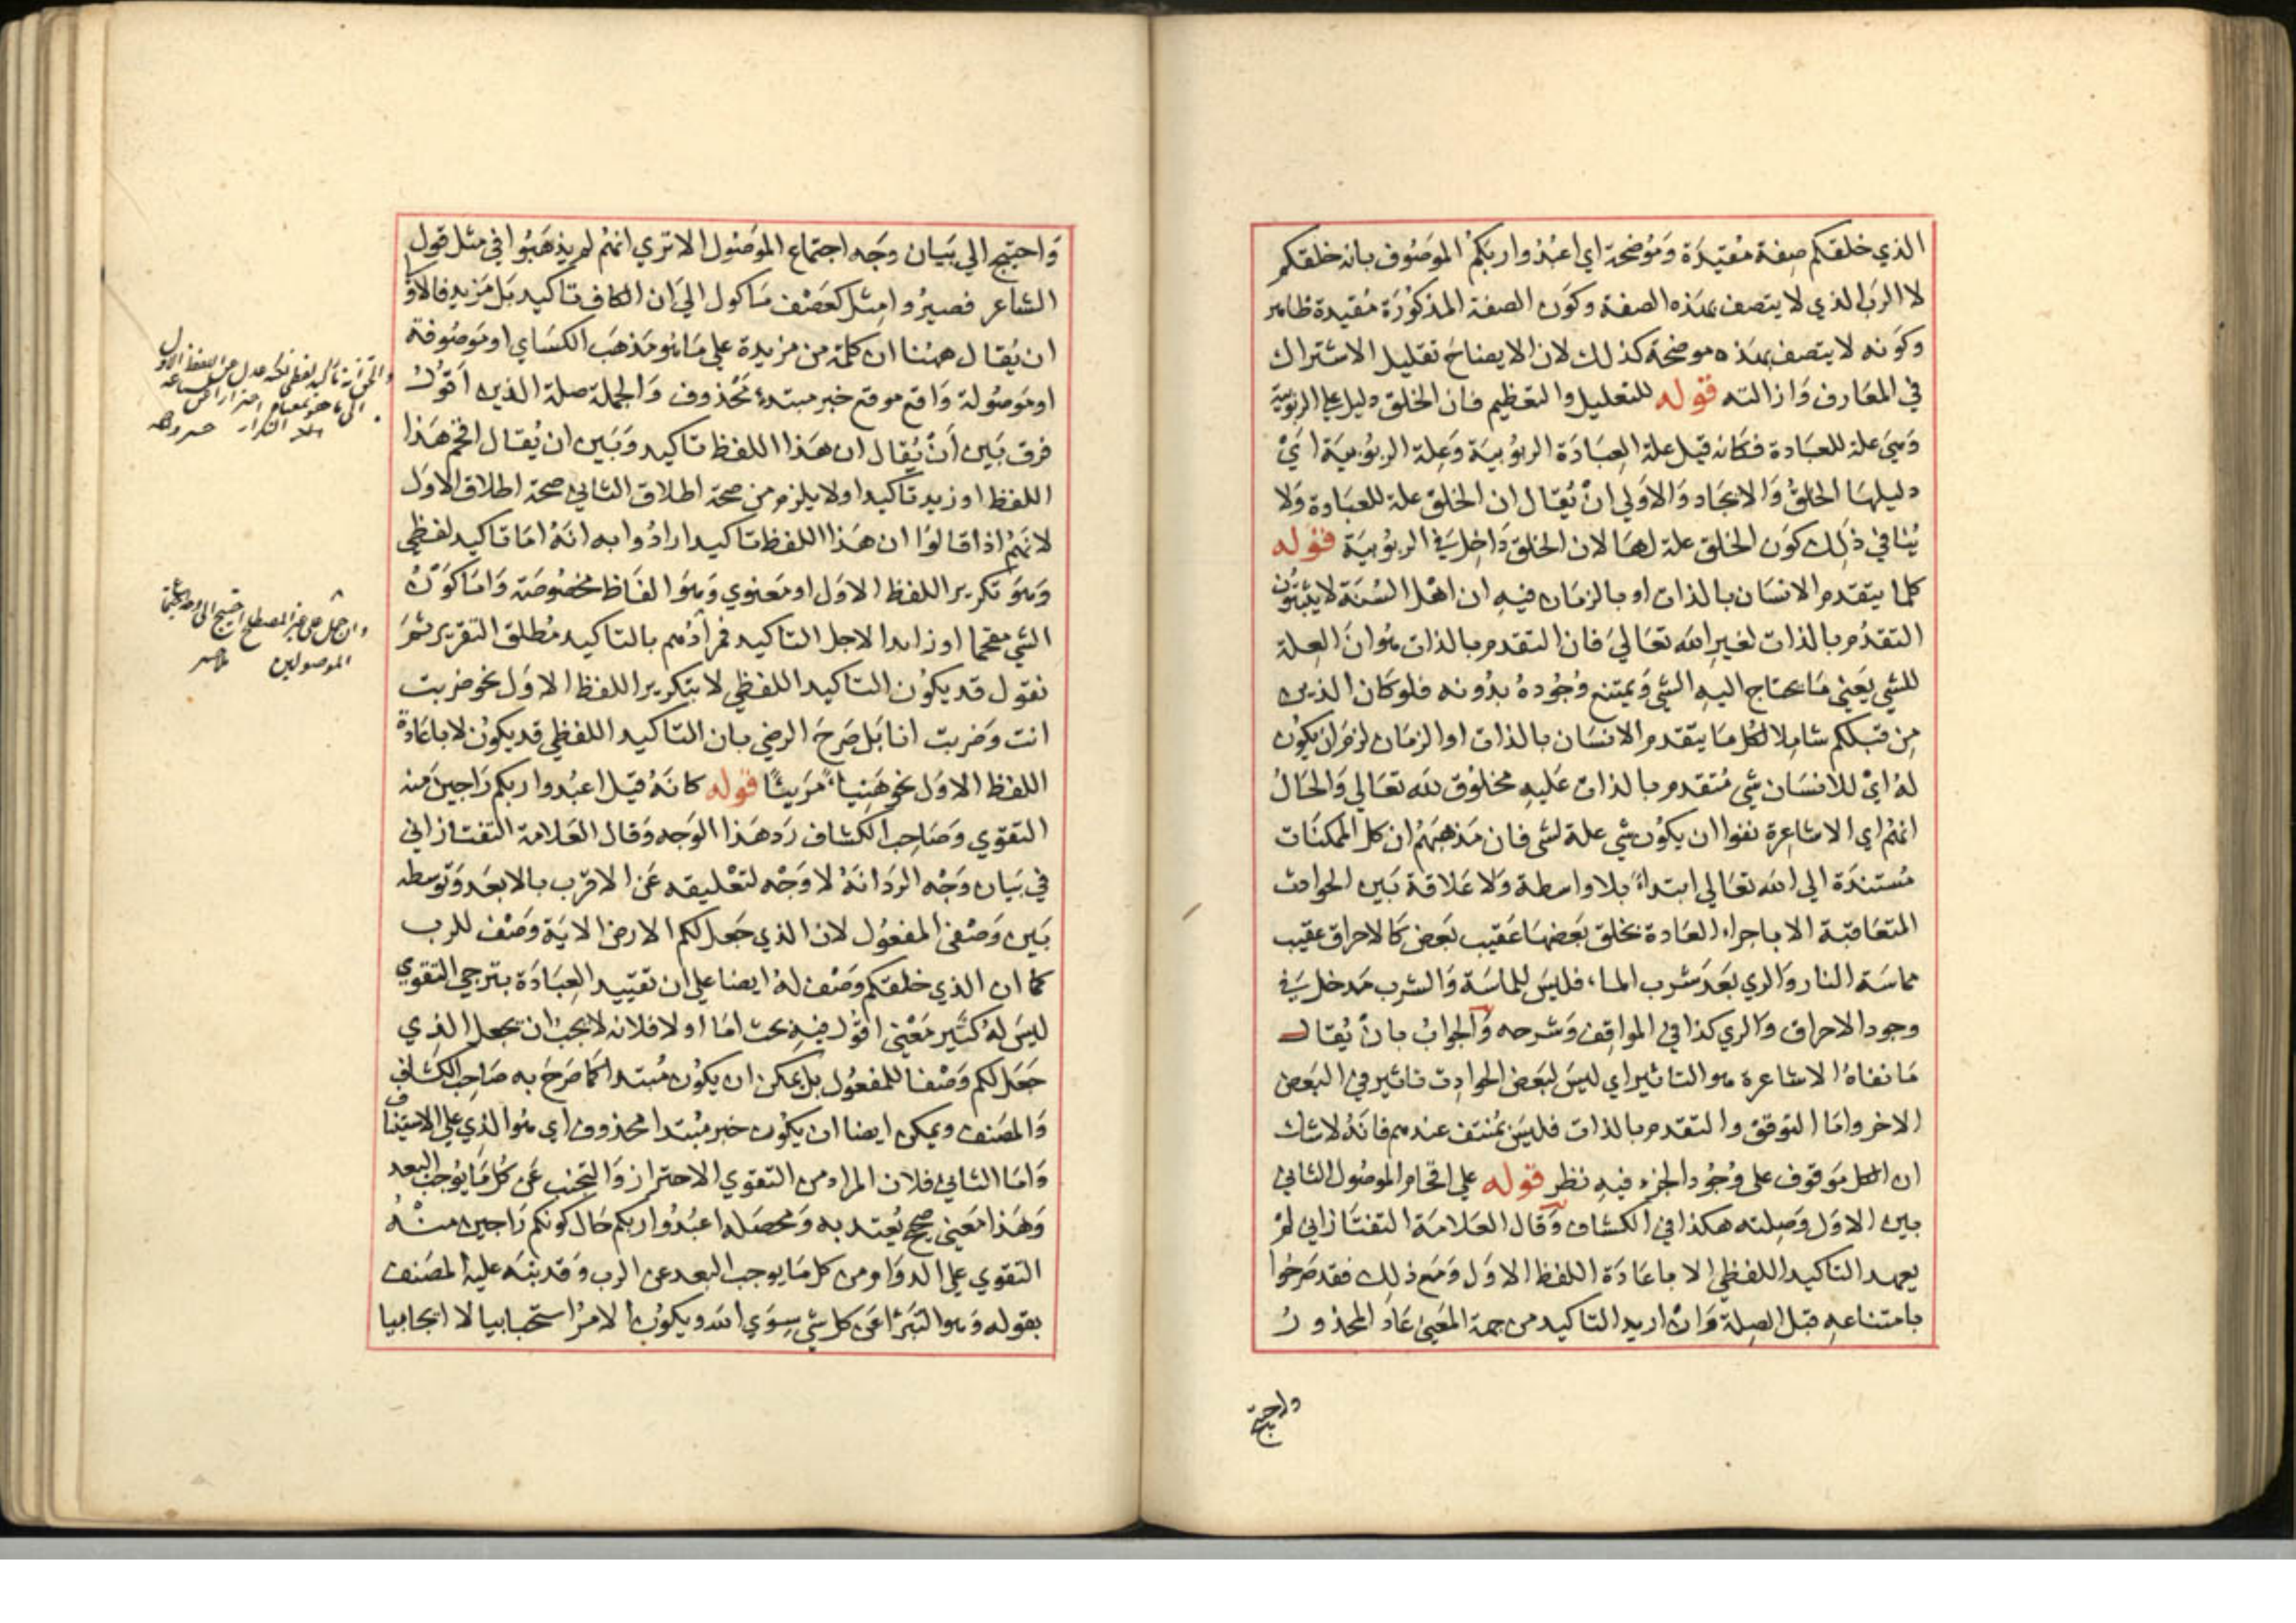 الذي خلقكم صفة مقيدة وموضحة اي اعبدوا ربكم الموصوف بانه خلقكم
لا الرب الذي لا يتصف بهذه الصفة وكون الصفة المذكورة مقيدة ظاهر
وكونه لا يتصف بهذه موضحة كذلك لان الايضاح تقليل الاشتراك
في المعارف وازالته قوله للتعليل والتعظيم فان الخلق دليل علي الربوبية
وهي علة للعبادة فكانه قيل علة العبادة الربوبية وعلة الربوبية اي
دليلها الخلق والايجاد والاولي ان يقال ان الخلق علة للعبادة ولا
ينافي ذلك كون الخلق علة لها لان الخلق داخل في الربوبية قوله
كلما يتقدم الانسان بالذات او بالزمان فيه ان اهل السنة لا يثبتون
التقدم بالذات لغير الله تعالي فان التقدم بالذات هو ان العلة
للشي يعني ما يحتاج اليه الشي ويمتنع وجوده بدونه فلو كان الذين
من قبلكم شاملا لكل ما يتقدم الانسان بالذات او الزمان لزم ان يكون
له اي للانسان شي متقدم بالذات عليه مخلوق لله تعالي والحال
انهم اي الاشاعرة نفوا ان يكون شي علة لشي فان مذهبهم ان كل الممكنات
مستندة الي الله تعالي ابتداء بلا واسطة ولا علاقة بين الحوادث
المتعاقبة الا باجراء العادة بخلق بعضها عقيب بعض كالاحراق عقيب
مماسة النار والري بعد شرب الماء فليس للماسة والشرب مدخل في
وجود الاحراق والري كذا في المواقف وشرحه والجواب بان يقال
ما نفاه الاشاعرة هو التاثير اي ليس لبعض الحوادث تاثير في البعض
الاخر واما التوقف والتقدم بالذات فليس بمنتف عندهم فانه لا شك
ان الكل موقوف على وجود الجزء فيه نظر قوله علي اقحام الموصول الثاني
بين الاول وصلته هكذا في الكشاف وقال العلامة التفتازاني لم
يعهد التاكيد اللفظي الا باعادة اللفظ الاول ومع ذلك فقد صرخوا
بامتناعه قبل الصلة وان اريد التاكيد من جهة المعني عاد المحذور
واحتيج
واحتيج الي بيان وجه اجتماع الموصول الا تري انهم لم يذهبوا في مثل قول
الشاعر فصيروا مثل كعصف ماكول الي ان الكاف تاكيد بل مزيد فالاولي
ان يقال ههنا ان كلمة من مزيدة علي ما هو مذهب الكساي او موصوفة
او موصولة واقع موقع خبر مبتدء محذوف والجملة صلة الذين اقول
فرق بين ان يقال ان هذا اللفظ تاكيد وبين ان يقال اقحم هذا
اللفظ او زيد تاكيدا ولا يلزم من صحة اطلاق الثاني صحة اطلاق الاول
لانهم اذا قالوا ان هذا اللفظ تاكيد ارادوا به انه اما تاكيد لفظي
وهو تكرير اللفظ الاول او معنوي وهو الفاظ مخصوصة واما كون
الشي مقحما او زايدا لاجل التاكيد فمرادهم بالتاكيد مطلق التقرير ثم
نقول قد يكون التاكيد اللفظي لا بتكرير اللفظ الاول نحو ضربت
انت وضربت انا بل صرح الرضي بان التاكيد اللفظي قد يكون لا باعادة
اللفظ الاول نحو هنيئا مريئا قوله كانه قيل اعبدوا ربكم راجين منه
التقوي وصاحب الكشاف رد هذا الوجه وقال العلامة التفتازاني
في بيان وجه الرد انه لا وجه لتعليقه عن الاقرب بالابعد وتوسطه
بين وصفي المفعول لان الذي جعل لكم الارض الاية وصف للرب
كما ان الذي خلقكم وصف له ايضا علي ان تقييد العبادة بترجي التقوي
ليس له كثير معني اقول فيه بحث اما اولا فلانه لا يجب ان يجعل الذي
جعل لكم وصفا للمفعول بل يمكن ان يكون مبتدا كما صرح به صاحب الكشاف
والمصنف ويمكن ايضا ان يكون خبر مبتدا محذوف اي هو الذي علي الاستيناف
واما الثاني فلان المراد من التقوي الاحتراز والتجنب عن كل ما يوجب البعد
وهذا معني صحيح يعتد به ومحصله اعبدوا ربكم حال كونكم راجين منه
التقوي علي الدوام من كل ما يوجب البعد عن الرب وقد نبه عليه المصنف
بقوله وهو التبرئ عن كل شي سوي الله ويكون الامر استحبابيا لا ايجابيا
تاكيد لفظي لكنه عدل عن اللفظ الاول
الى ما هو بمعناه احترازا عن
التكرار خسرو
وان حمل على غير المصطلح احتيج الى وجه
الموصولين